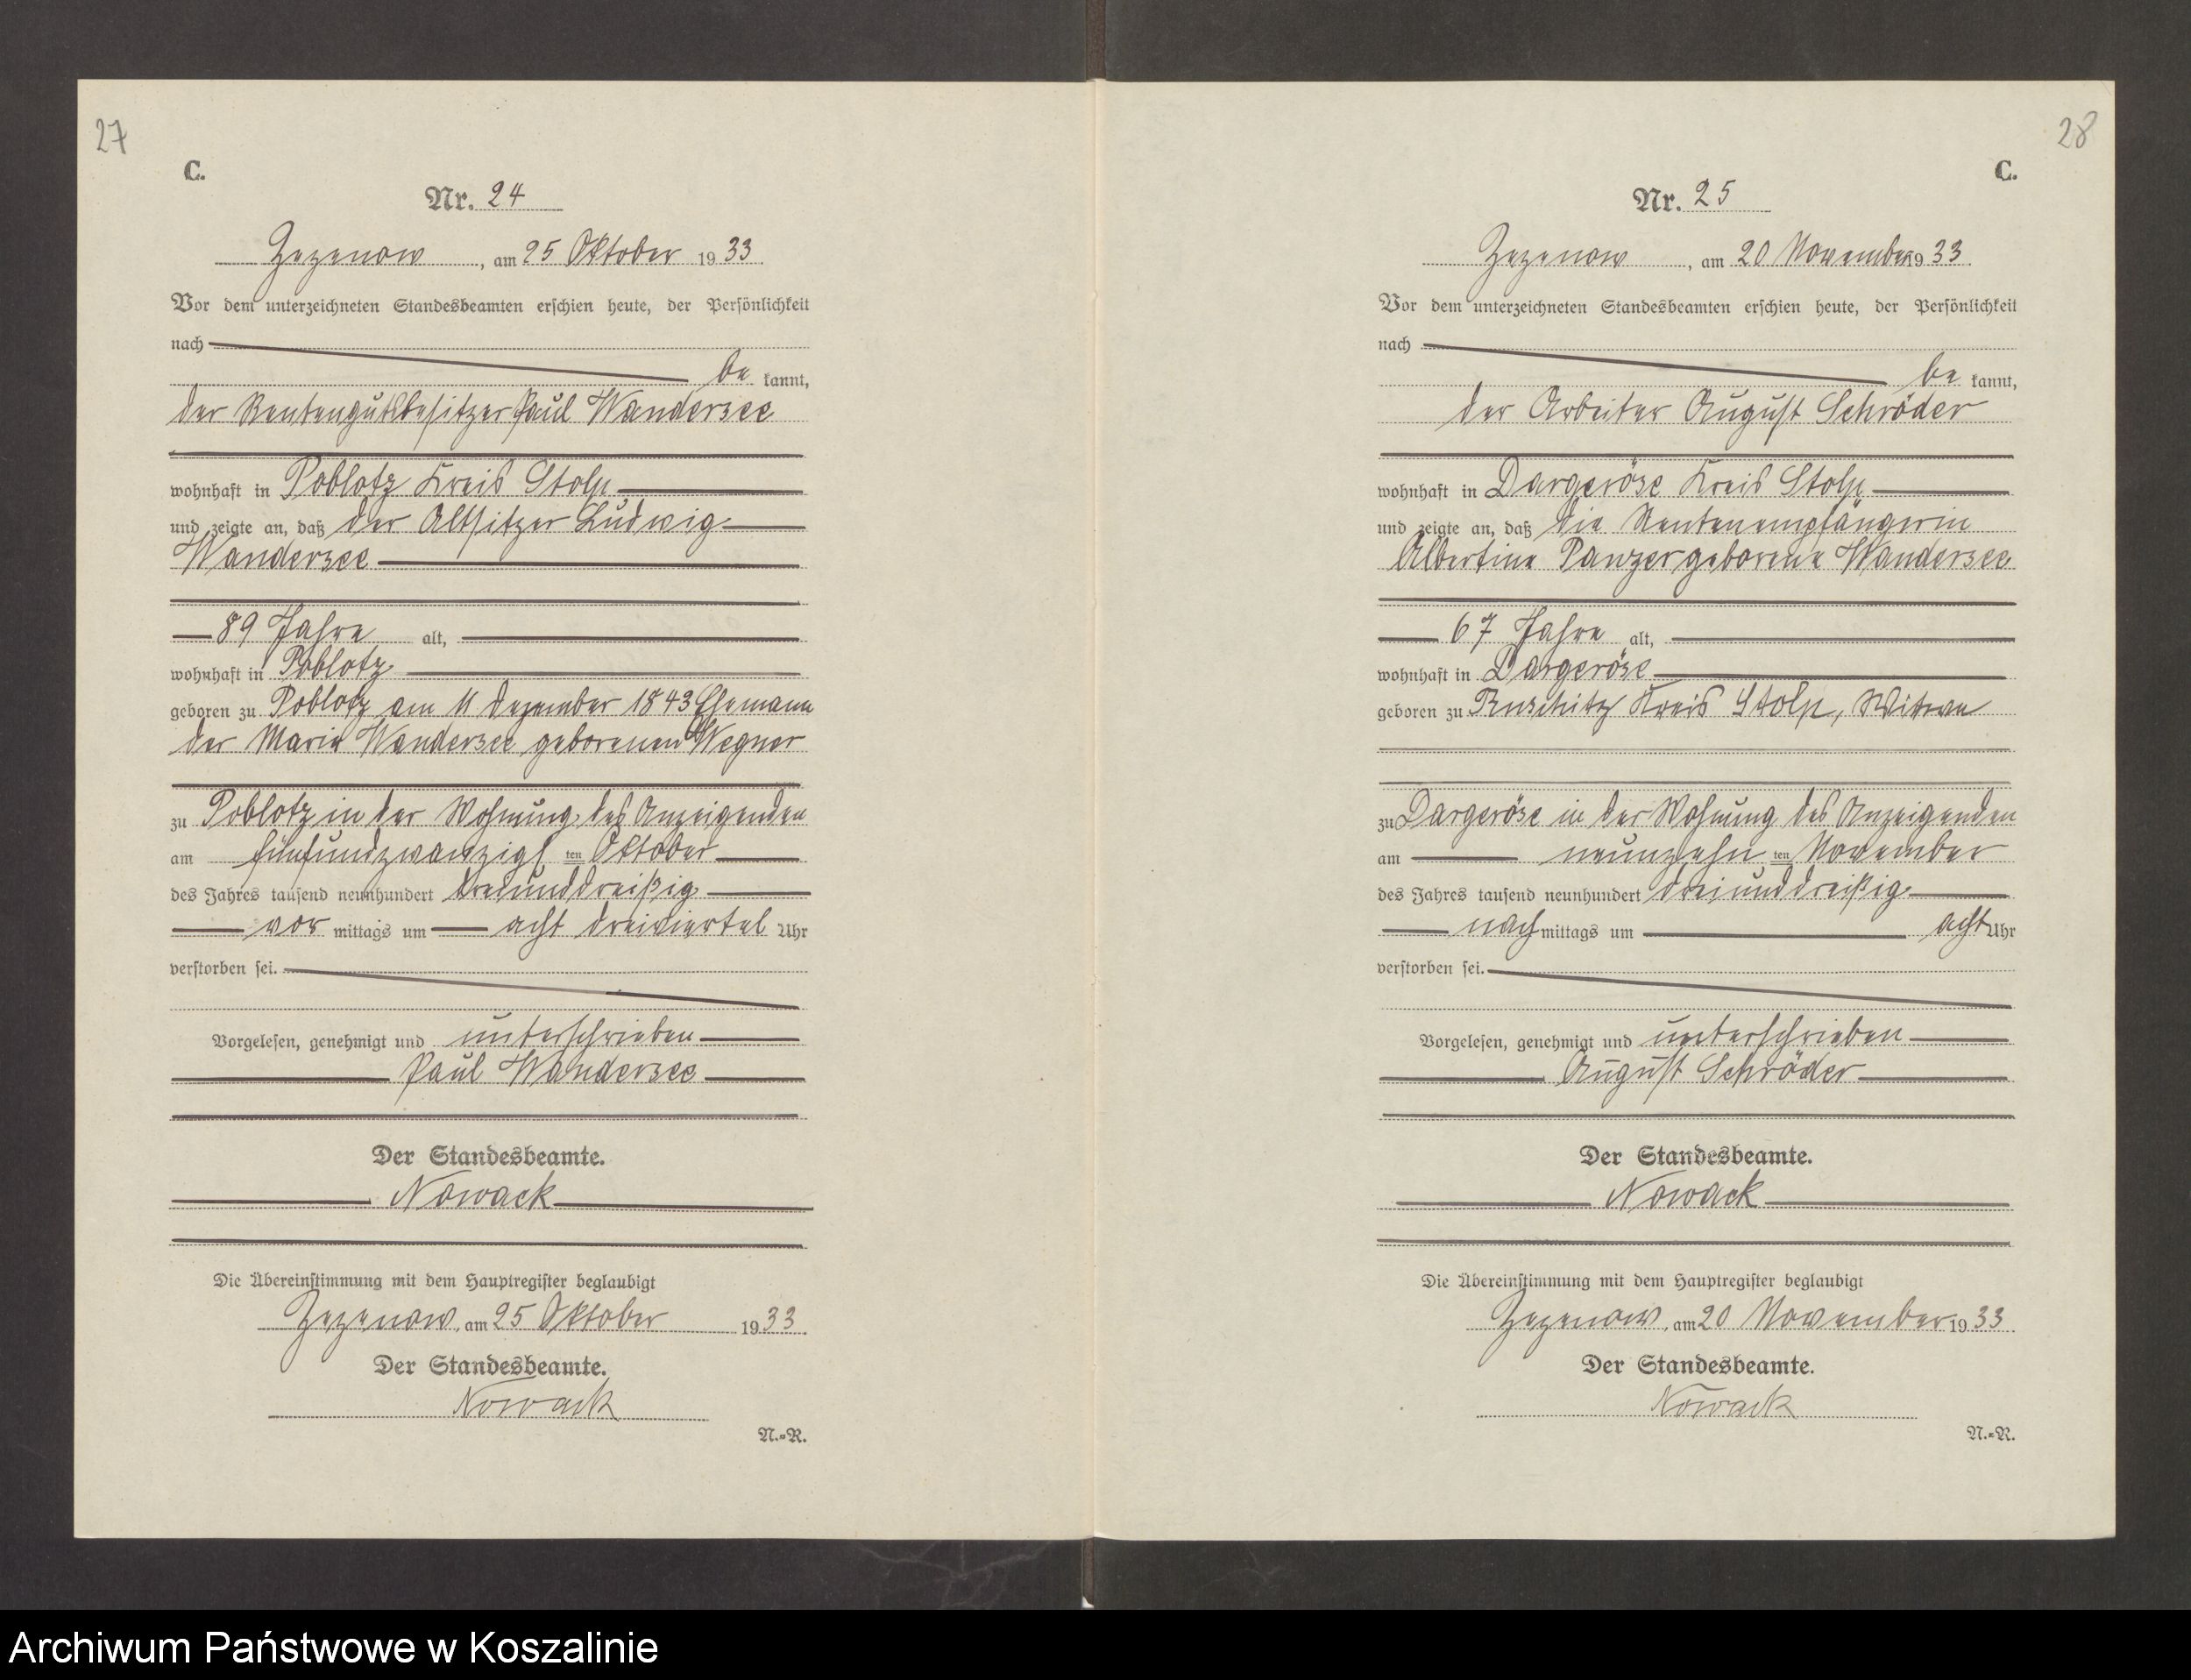 27
C.
Nr. 24
Zezenow, am 25 Oktober 1933.
Vor dem unterzeichneten Standesbeamten erschien heute, der Persönlichkeit
nach
be kannt,
der Rentengutsbesitzer Paul Wandersee
wohnhaft in Poblotz Kreis Stolp
und zeigte an, daß der Altsitzer Ludwig
Wandersee
89 Jahre alt,
wohnhaft in Poblotz
geboren zu Poblotz am 11 Dezember 1843 Ehemann
der Marie Wandersee geborenen Wegner
zu Poblotz in der Wohnung des Anzeigenden
am fünfundzwanzigsten Oktober
des Jahres tausend neunhundert dreiunddreißig
vor mittags um acht dreiviertel Uhr
verstorben sei.
Vorgelesen, genehmigt und unterschrieben
Paul Wandersee
Der Standesbeamte.
Nowack
Die Übereinstimmung mit dem Hauptregister beglaubigt
Zezenow, am 25 Oktober 1933.
Der Standesbeamte.
Nowack
N.=R.
28
C.
Nr. 25
Zezenow, am 20 November 1933.
Vor dem unterzeichneten Standesbeamten erschien heute, der Persönlichkeit
nach
be kannt,
der Arbeiter August Schröder
wohnhaft in Dargeröse Kreis Stolp
und zeigte an, daß die Rentenempfängerin
Albertine Panzer geborene Wandersee
67 Jahre alt,
wohnhaft in Dargeröse
geboren zu Ruschitz Kreis Stolp, Witwe
zu Dargeröse in der Wohnung des Anzeigenden
am neunzehnten November
des Jahres tausend neunhundert dreiunddreißig
nach mittags um acht Uhr
verstorben sei.
Vorgelesen, genehmigt und unterschrieben
August Schröder
Der Standesbeamte.
Nowack
Die Übereinstimmung mit dem Hauptregister beglaubigt
Zezenow, am 20 November 1933.
Der Standesbeamte.
Nowack
N.=R.
Archiwum Państwowe w Koszalinie